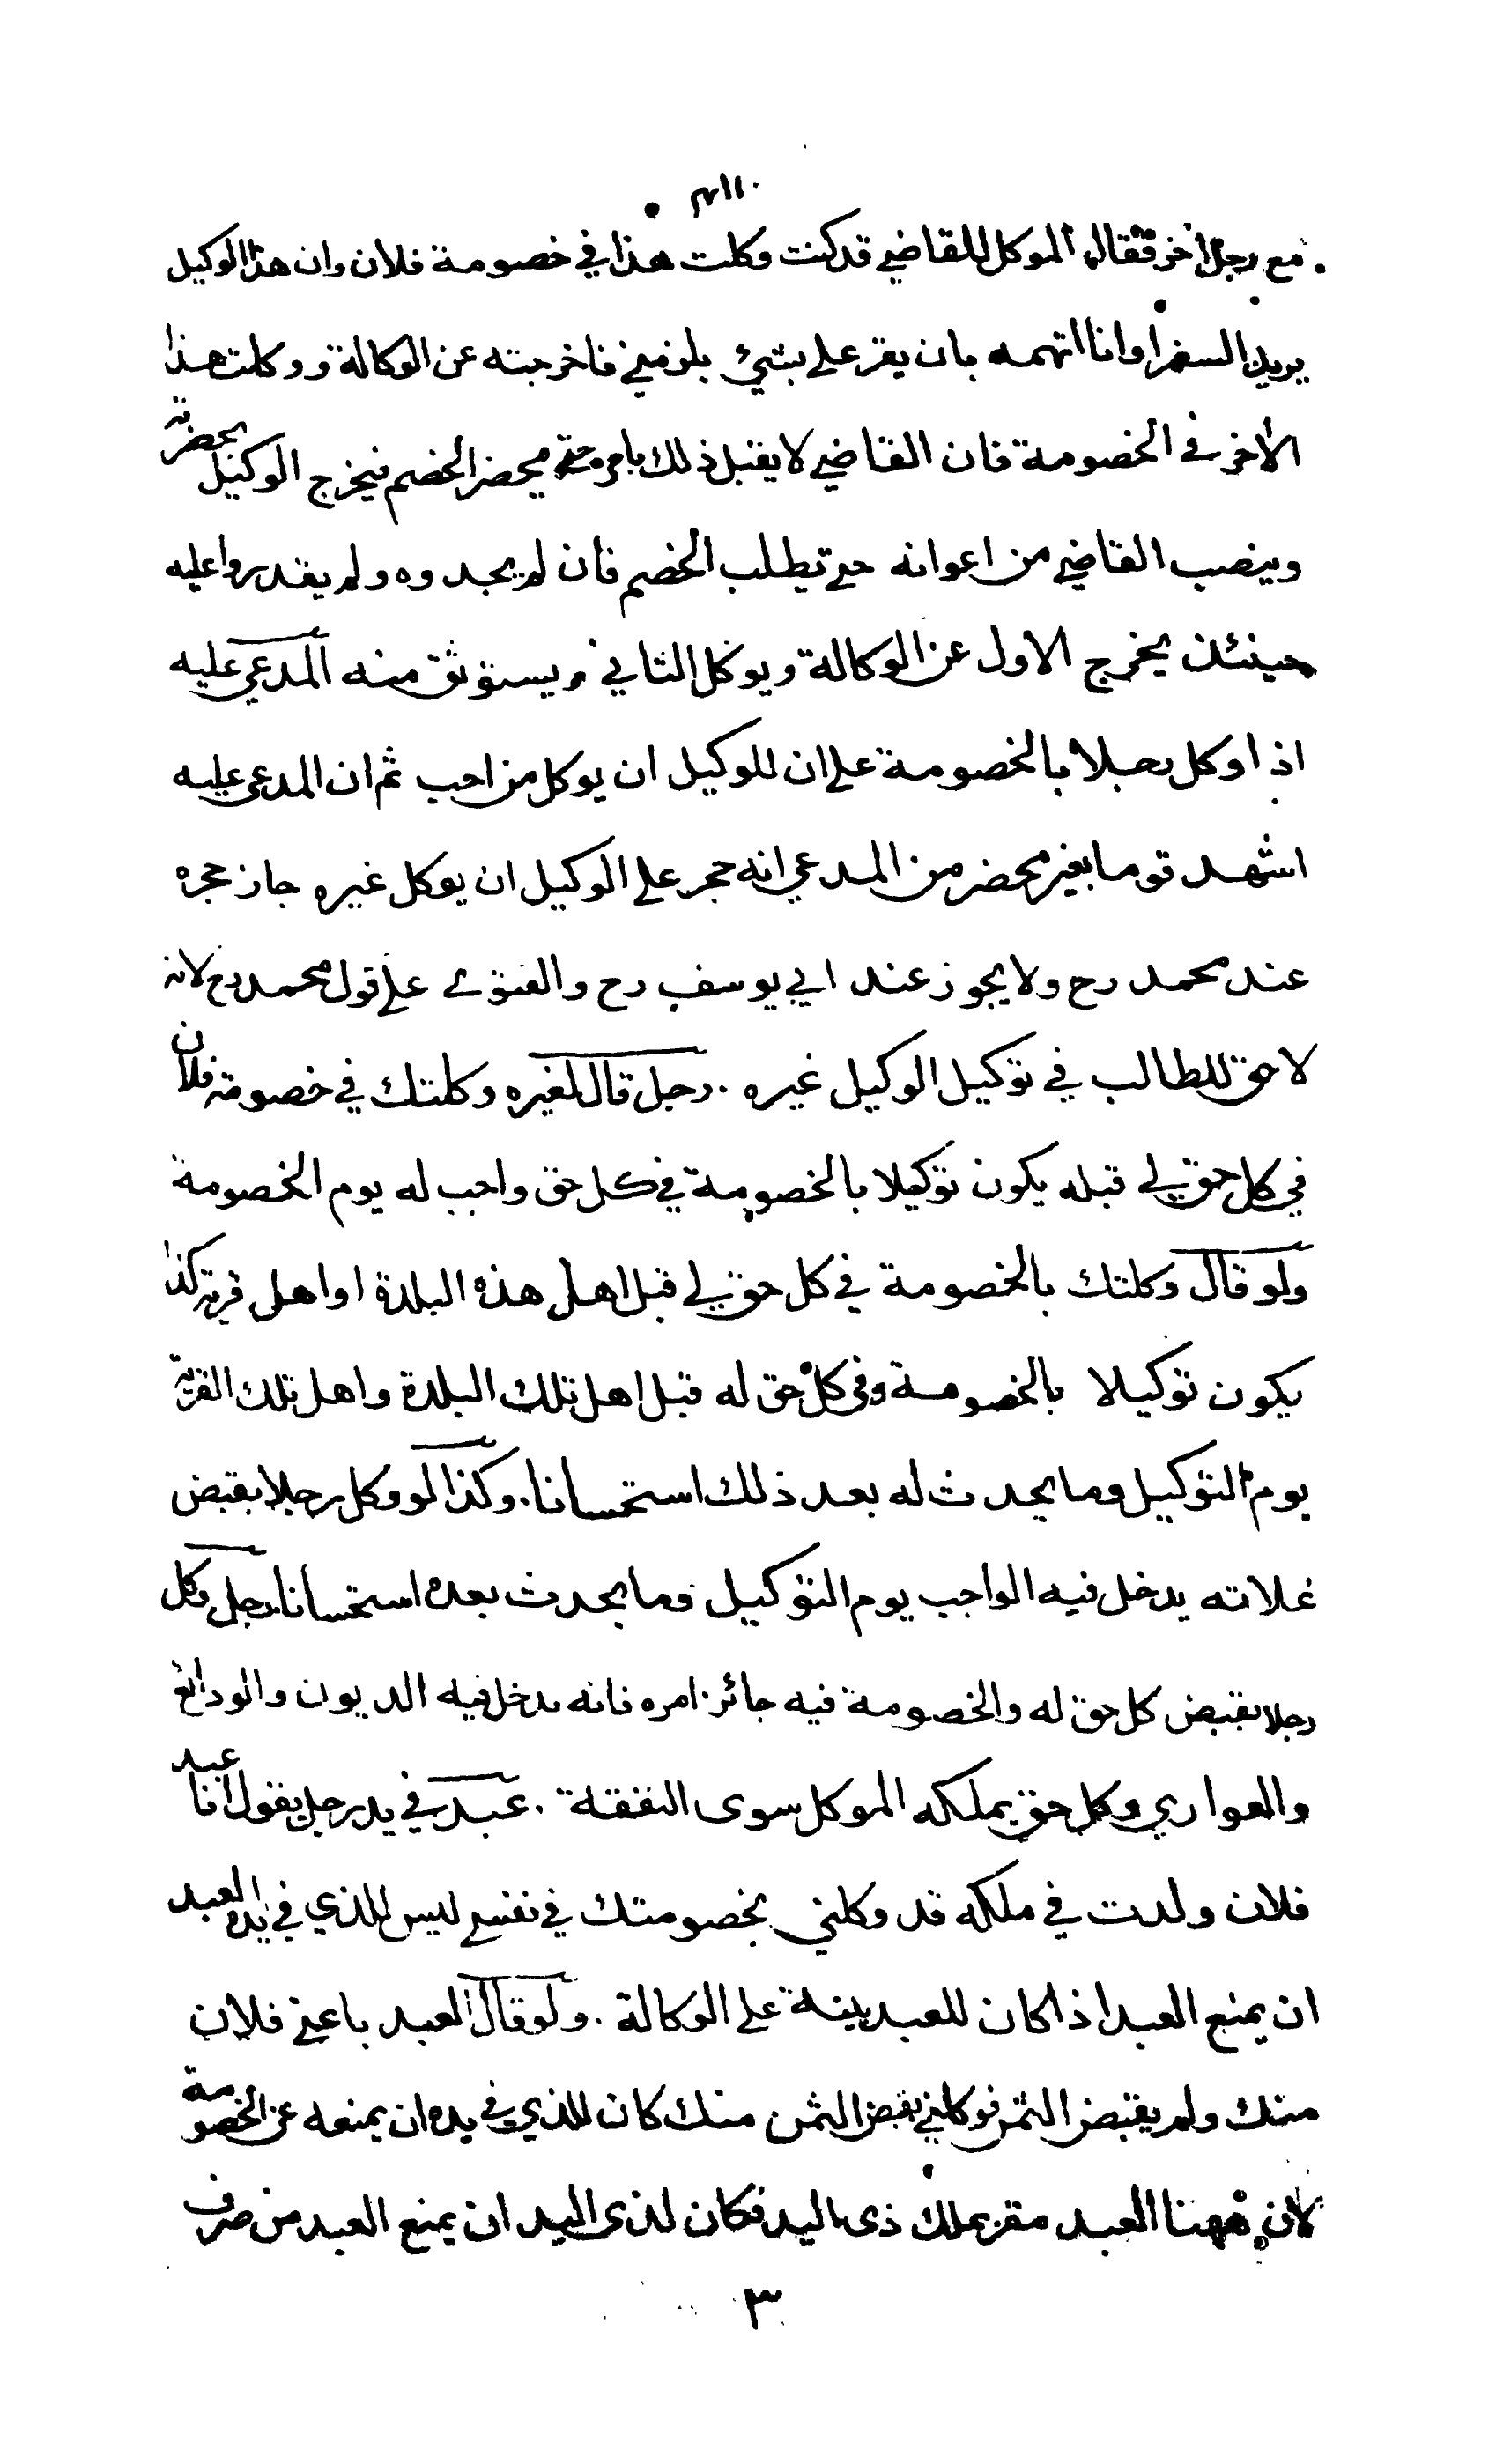 مع رجل اخر فقال الموكل للقاضي قد كنت وكلت هذا في خصومة فلان وان هذا الوكيل
يريد السفر وانا اتهمه بان يقر علي بشيء يلزمني فاخرجته عن الوكالة ووكلت هذا
الاخر في الخصومة فان القاضي لا يقبل ذلك حتى يحضر الخصم فيخرج الوكيل بحضرته
وينصب القاضي من اعوانه حتى يطلب الخصم فان لم يجدوه ولم يقدروا عليه
حينئذ يخرج الاول عن الوكالة ويوكل الثاني ويستوثق منه المدعي عليه
اذا وكل رجلا بالخصومة على ان للوكيل ان يوكل من احب ثم ان المدعي عليه
اشهد قوما بغير محضر من المدعي انه حجر على الوكيل ان يوكل غيره جاز حجره
عند محمد رح ولا يجوز عند ابي يوسف رح والفتوى على قول محمد رح لانه
لا حق للطالب في توكيل الوكيل غيره . رجل قال لغيره وكلتك في خصومة فلان
في كل حق لي قبله يكون توكيلا بالخصومة في كل حق واجب له يوم الخصومة
ولو قال وكلتك بالخصومة في كل حق لي قبل اهل هذه البلدة او اهل قرية كذا
يكون توكيلا بالخصومة في كل حق له قبل اهل تلك البلدة واهل تلك القرية
يوم التوكيل وما يحدث له بعد ذلك استحسانا . وكذا لو وكل رجلا بقبض
غلاته يدخل فيه الواجب يوم التوكيل وما يحدث بعده استحسانا رجل وكل
رجلا بقبض كل حق له والخصومة فيه جائز امره فانه يدخل فيه الديون والودائع
والعواري وكل حق يملكه الموكل سوى النفقة . عبد في يد رجل يقول انا عبد
فلان ولدت في ملكه قد وكلني بخصومتك في نفسي ليس للذي في يده العبد
ان يمنع العبد اذا كان للعبد بينة على الوكالة . ولو قال العبد باعني فلان
منك ولم يقبض الثمن فوكلني بقبض الثمن منك كان للذي في يده ان يمنعه عن الخصومة
لان ههنا العبد مقر بملك ذي اليد فكان لذي اليد ان يمنع العبد من صرف
٣